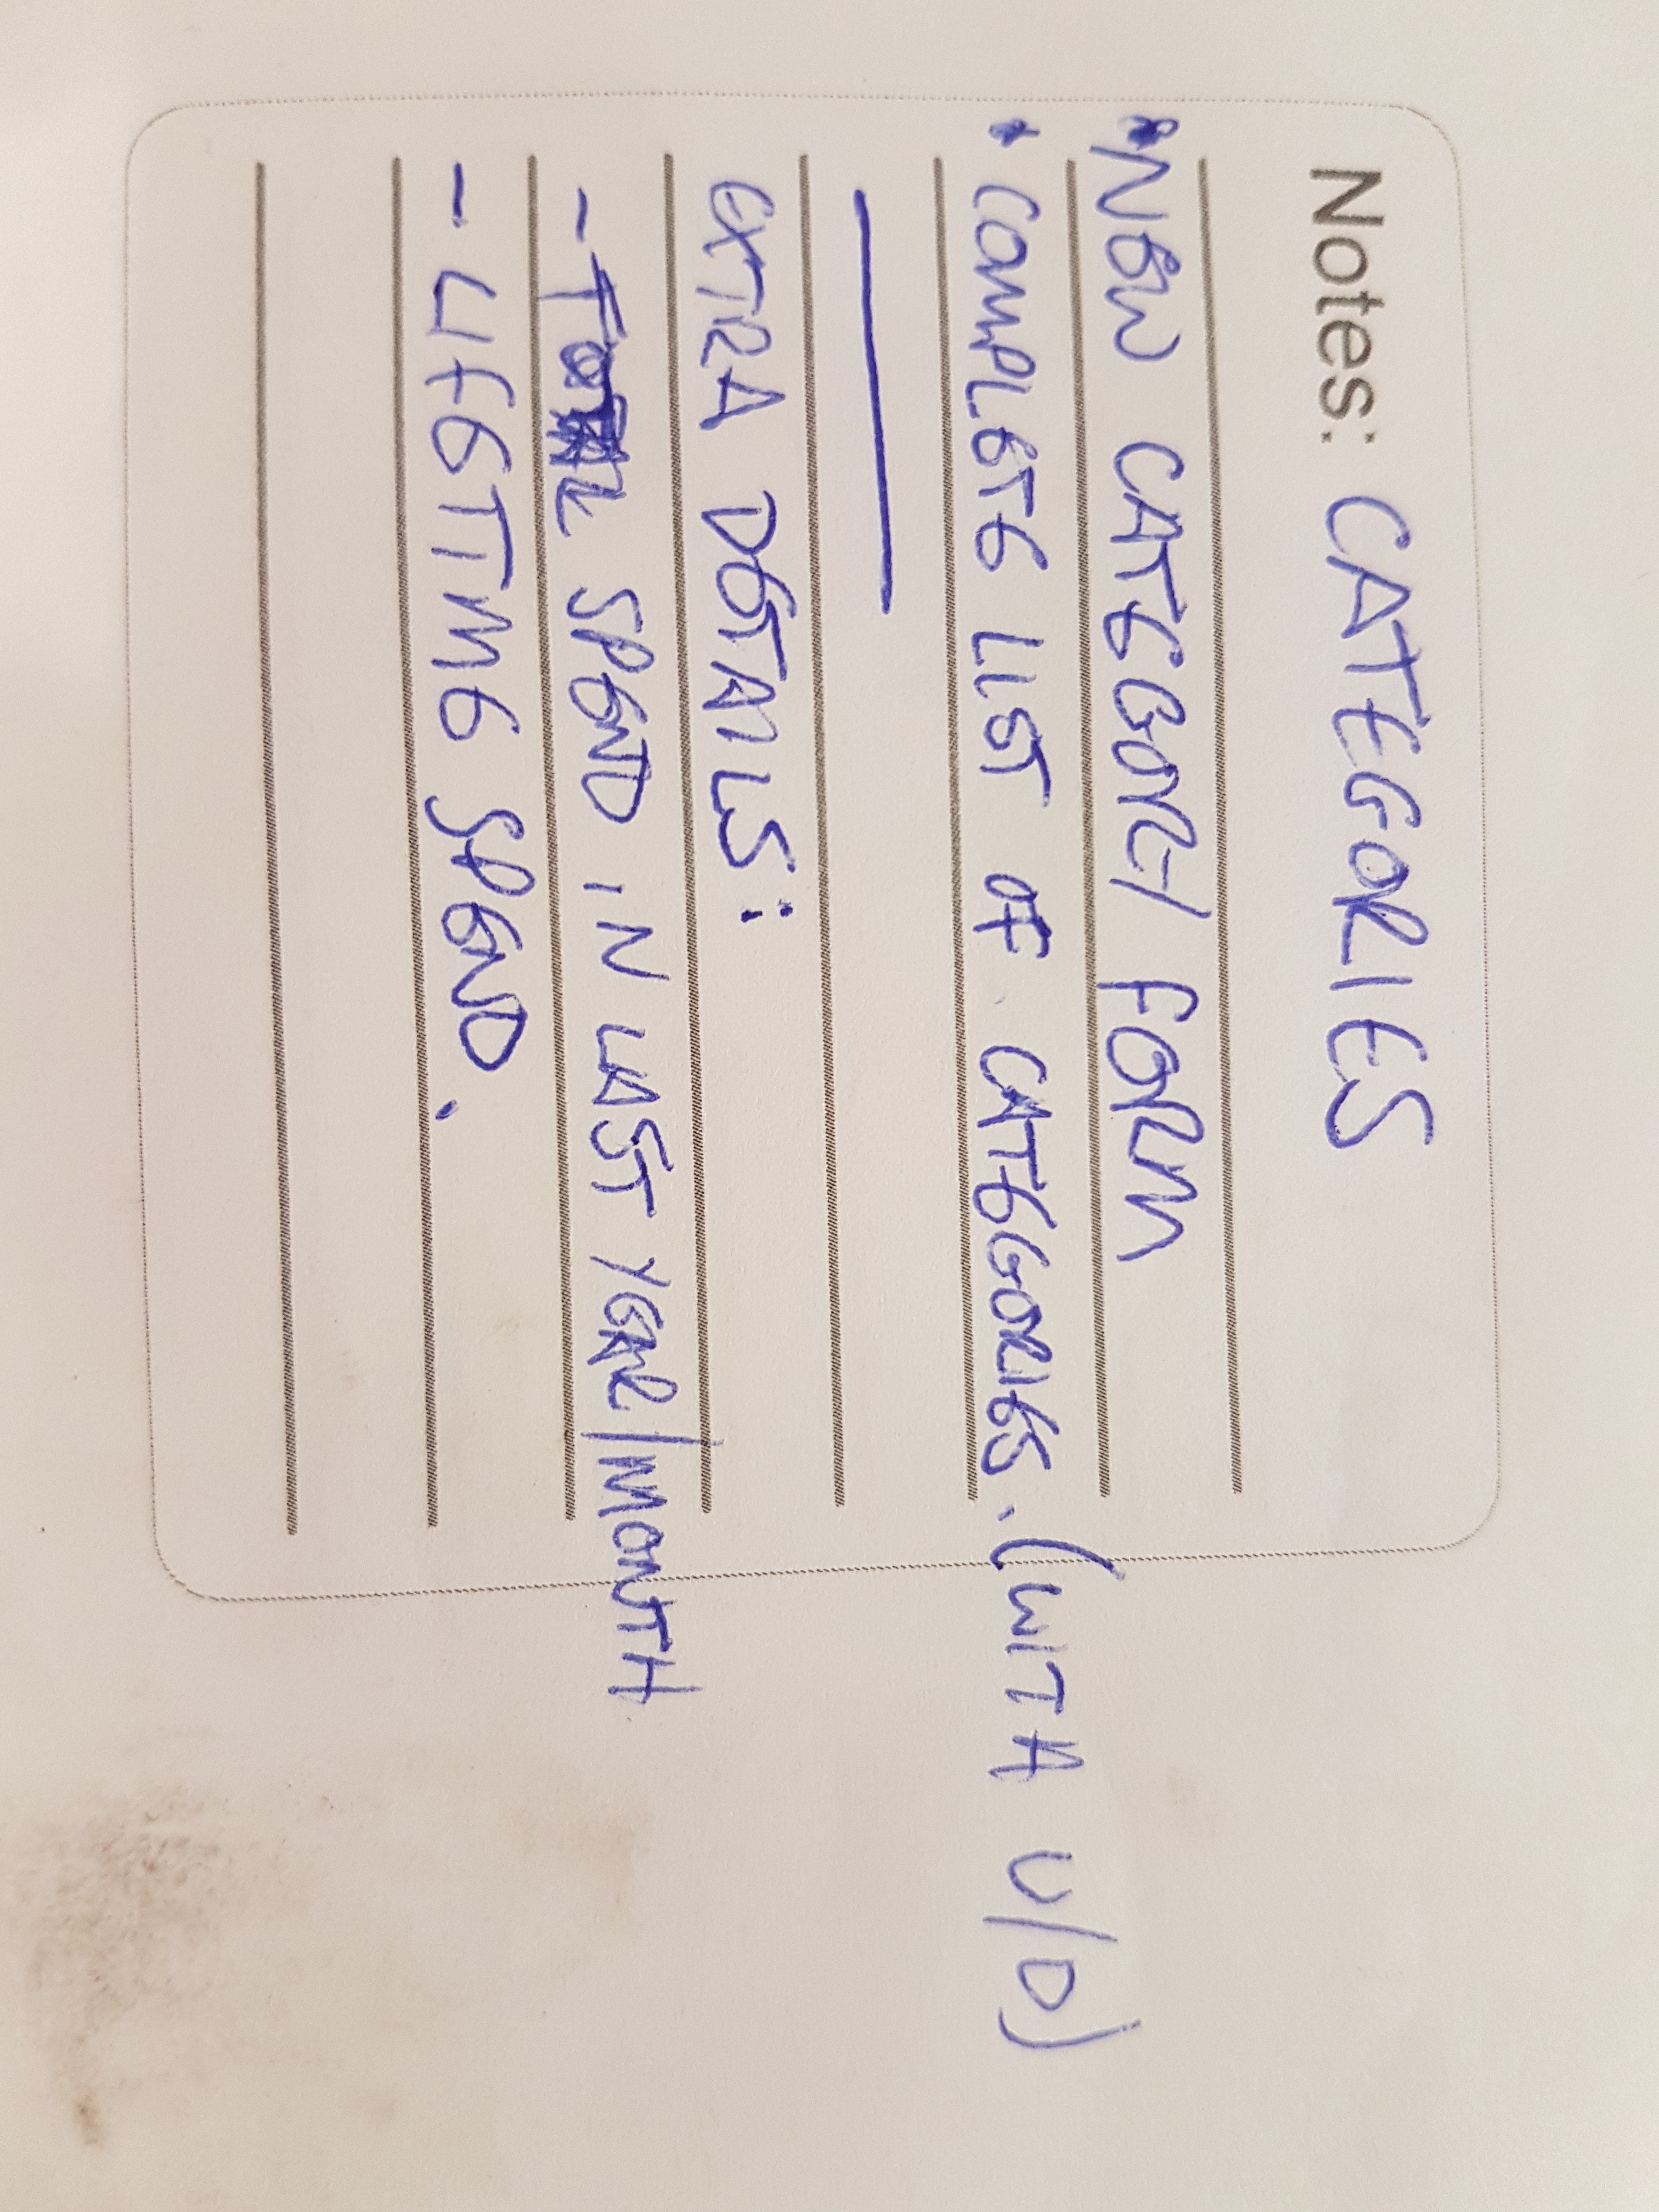 Notes: CATEGORIES
* NEW CATEGORY FORM
* COMPLETE LIST OF CATEGORIES. (WITH U/D)
EXTRA DETAILS:
- TOTAL SPEND IN LAST YEAR/MONTH
- LIFETIME SPEND.